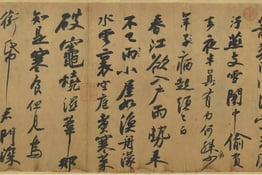 汙燕支雪闇中偷負
去夜半真有力何殊少
年子病起須已白
春江欲入戶雨勢來
不已小屋如漁舟濛濛
水雲裏空庖煑寒菜
破竈燒濕葦那
知是寒食但見烏
銜帋君門深